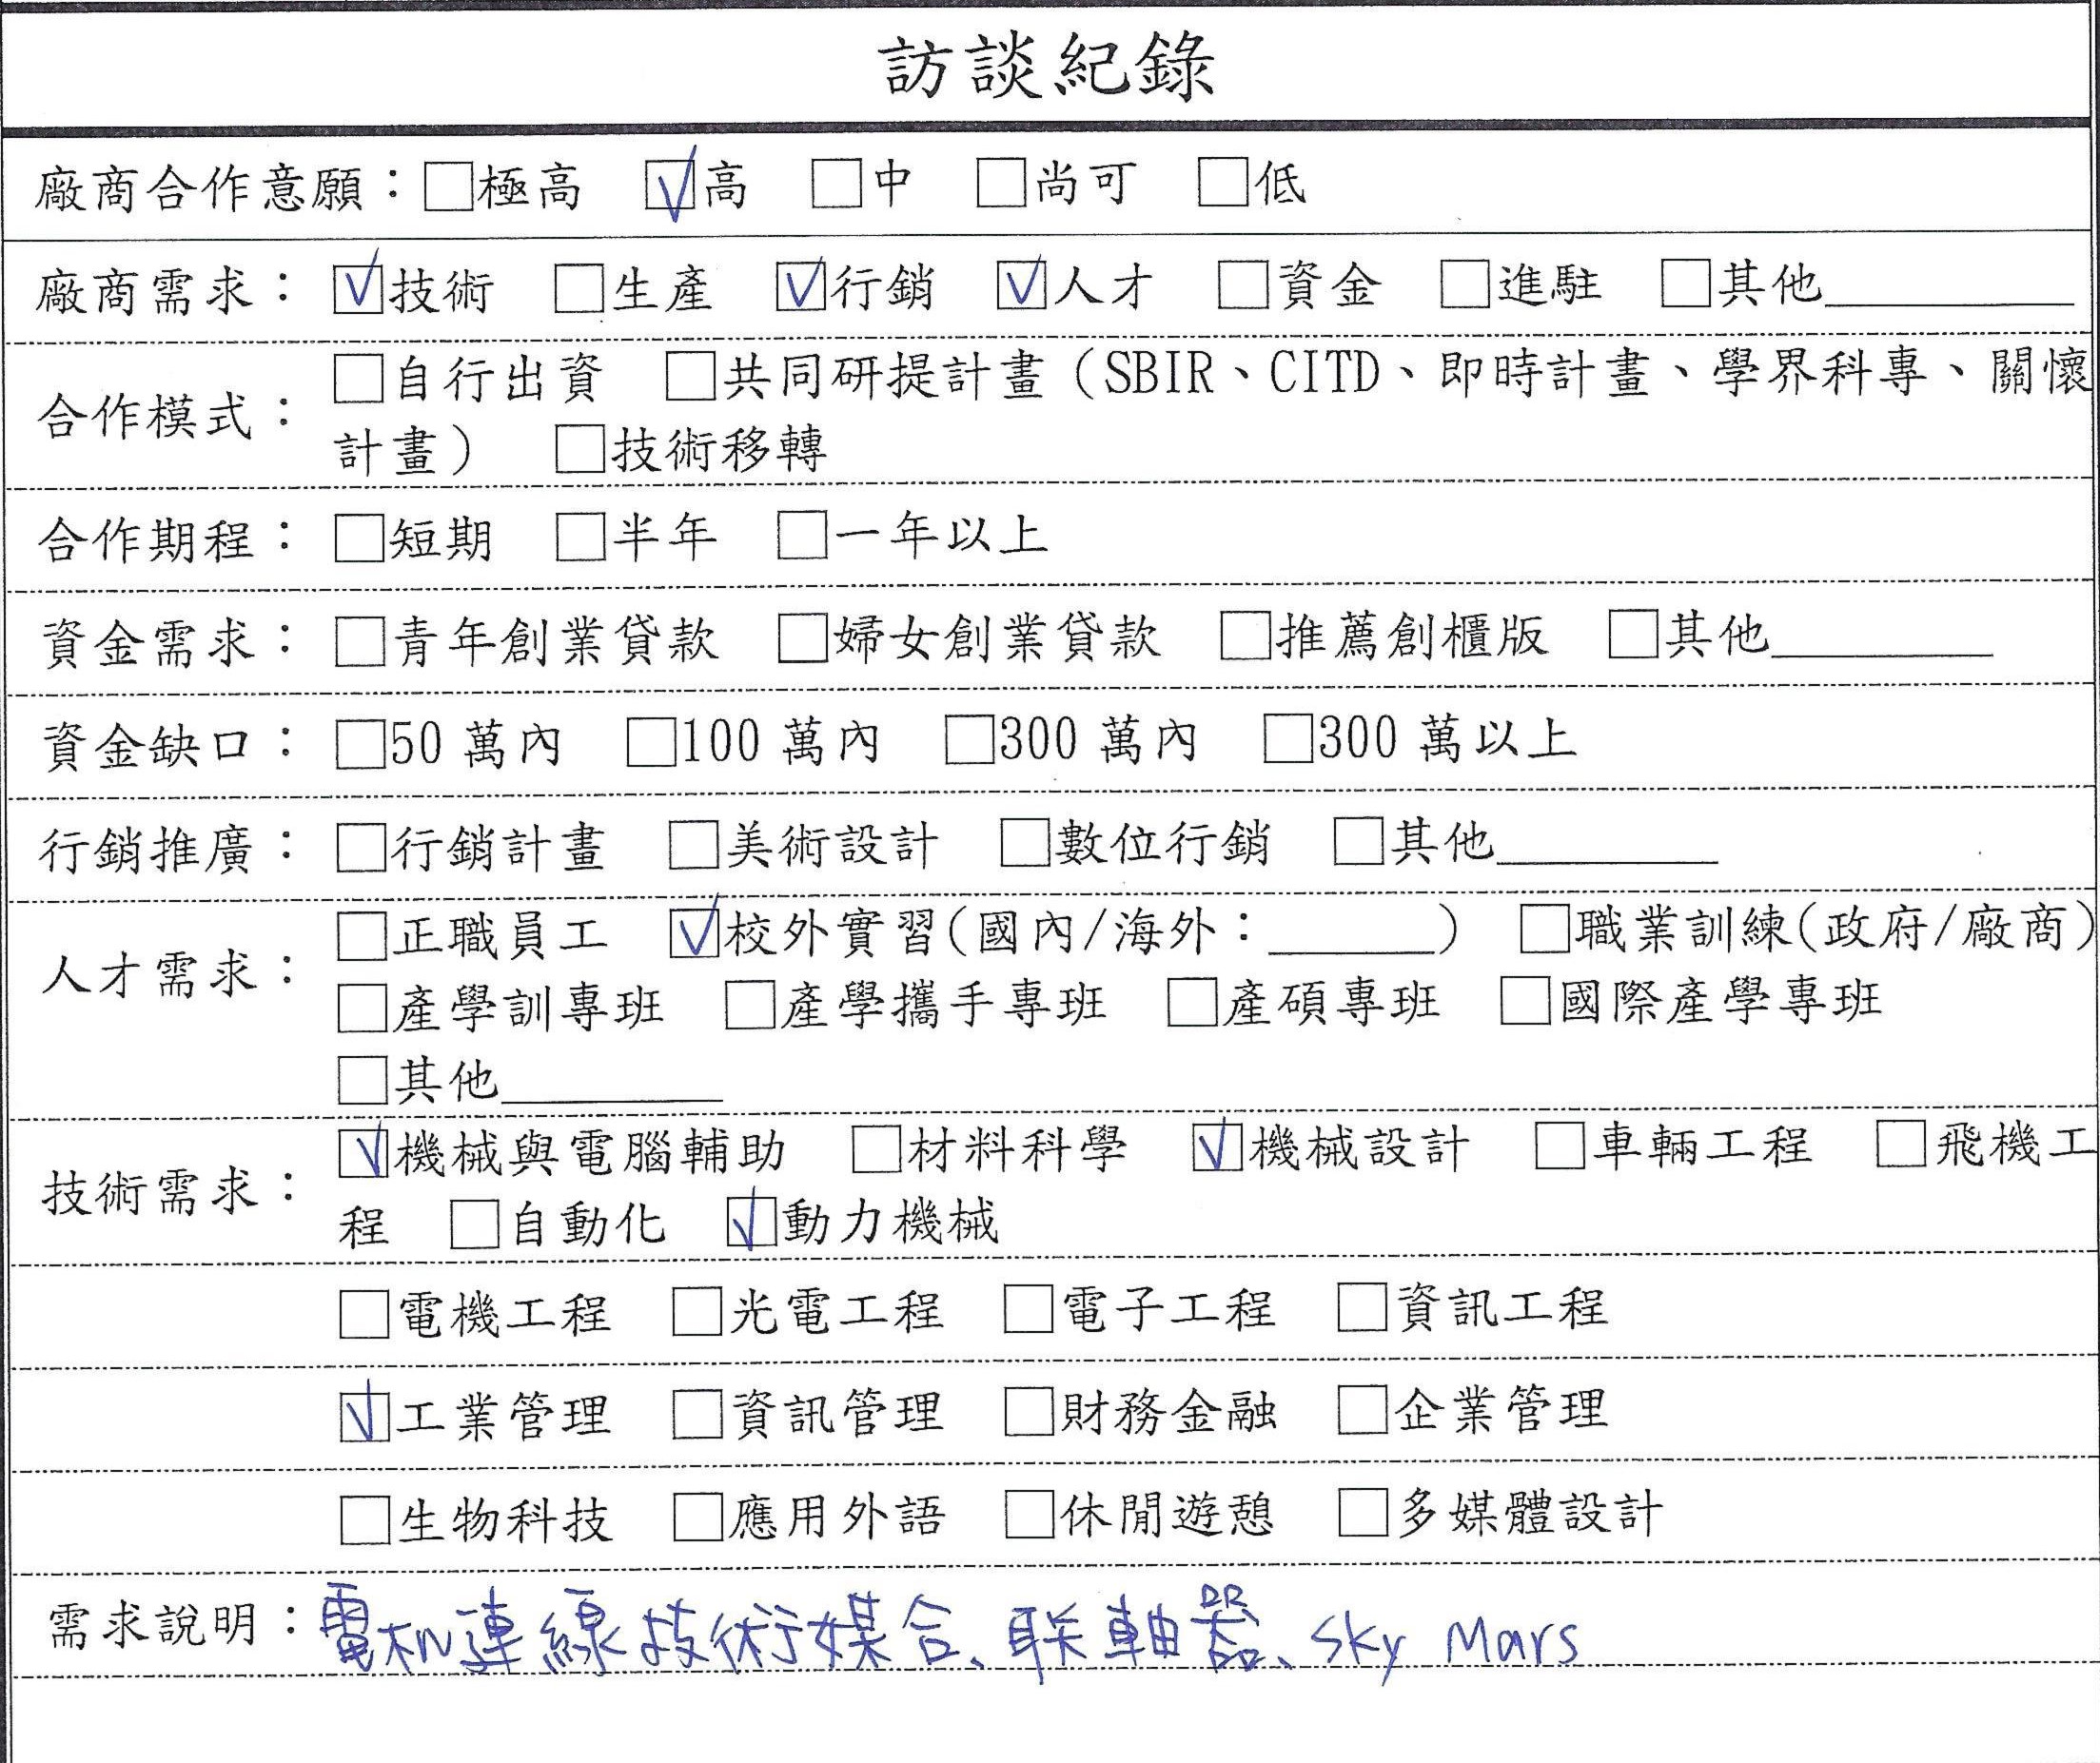 訪談紀錄
廠商合作意願：□極高 ☑高 □中 □尚可 □低
廠商需求： ☑技術 □生產 ☑行銷 ☑人才 □資金 □進駐 □其他_________
合作模式： □自行出資 □共同研提計畫（SBIR、CITD、即時計畫、學界科專、關懷
計畫） □技術移轉
合作期程： □短期 □半年 □一年以上
資金需求： □青年創業貸款 □婦女創業貸款 □推薦創櫃版 □其他________
資金缺口： □50 萬內 □100 萬內 □300 萬內 □300 萬以上
行銷推廣： □行銷計畫 □美術設計 □數位行銷 □其他________
人才需求： □正職員工 ☑校外實習(國內/海外：______) □職業訓練(政府/廠商)
□產學訓專班 □產學攜手專班 □產碩專班 □國際產學專班
□其他________
技術需求： ☑機械與電腦輔助 □材料科學 ☑機械設計 □車輛工程 □飛機工
程 □自動化 ☑動力機械
□電機工程 □光電工程 □電子工程 □資訊工程
☑工業管理 □資訊管理 □財務金融 □企業管理
□生物科技 □應用外語 □休閒遊憩 □多媒體設計
需求說明：電机連線技術媒合、联軸器、Sky Mars